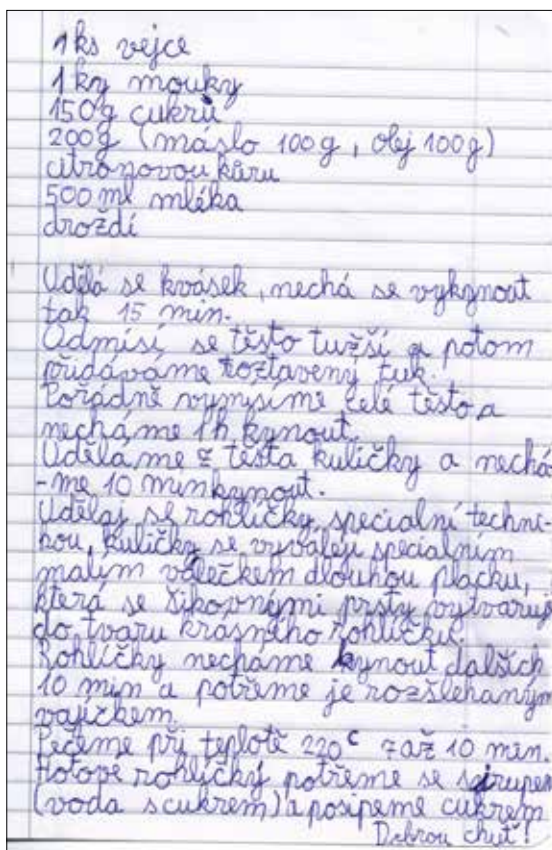 1 ks vejce
1 kg mouky
150g cukrů
200g (máslo 100g, olej 100g)
citronovou kůru
500 ml mléka
droždí
Udělá se kvásek, nechá se vykynout
tak 15 min.
Odmísí se těsto tužší a potom
přidáváme roztavený tuk.
Pořádně vymysíme celé těsto a
necháme 1h kynout.
Uděláme z těsta kuličky a nechá-
-me 10 min kynout.
Udělaj se rohlíčky specialní techni-
kou, kuličky se vyválejí specialním
malím válečkem dlouhou placku,
která se šikovnými prsty vytvaruje
do tvaru krásného rohlíčku.
Rohlíčky necháme kynout dalších
10 min a potřeme je rozšlehaným
vajíčkem.
Pečeme při teplotě 220°C 7 až 10 min.
Hotové rohlíčky potřeme se sirupem
(voda s cukrem) a posipeme cukrem
Dobrou chuť!